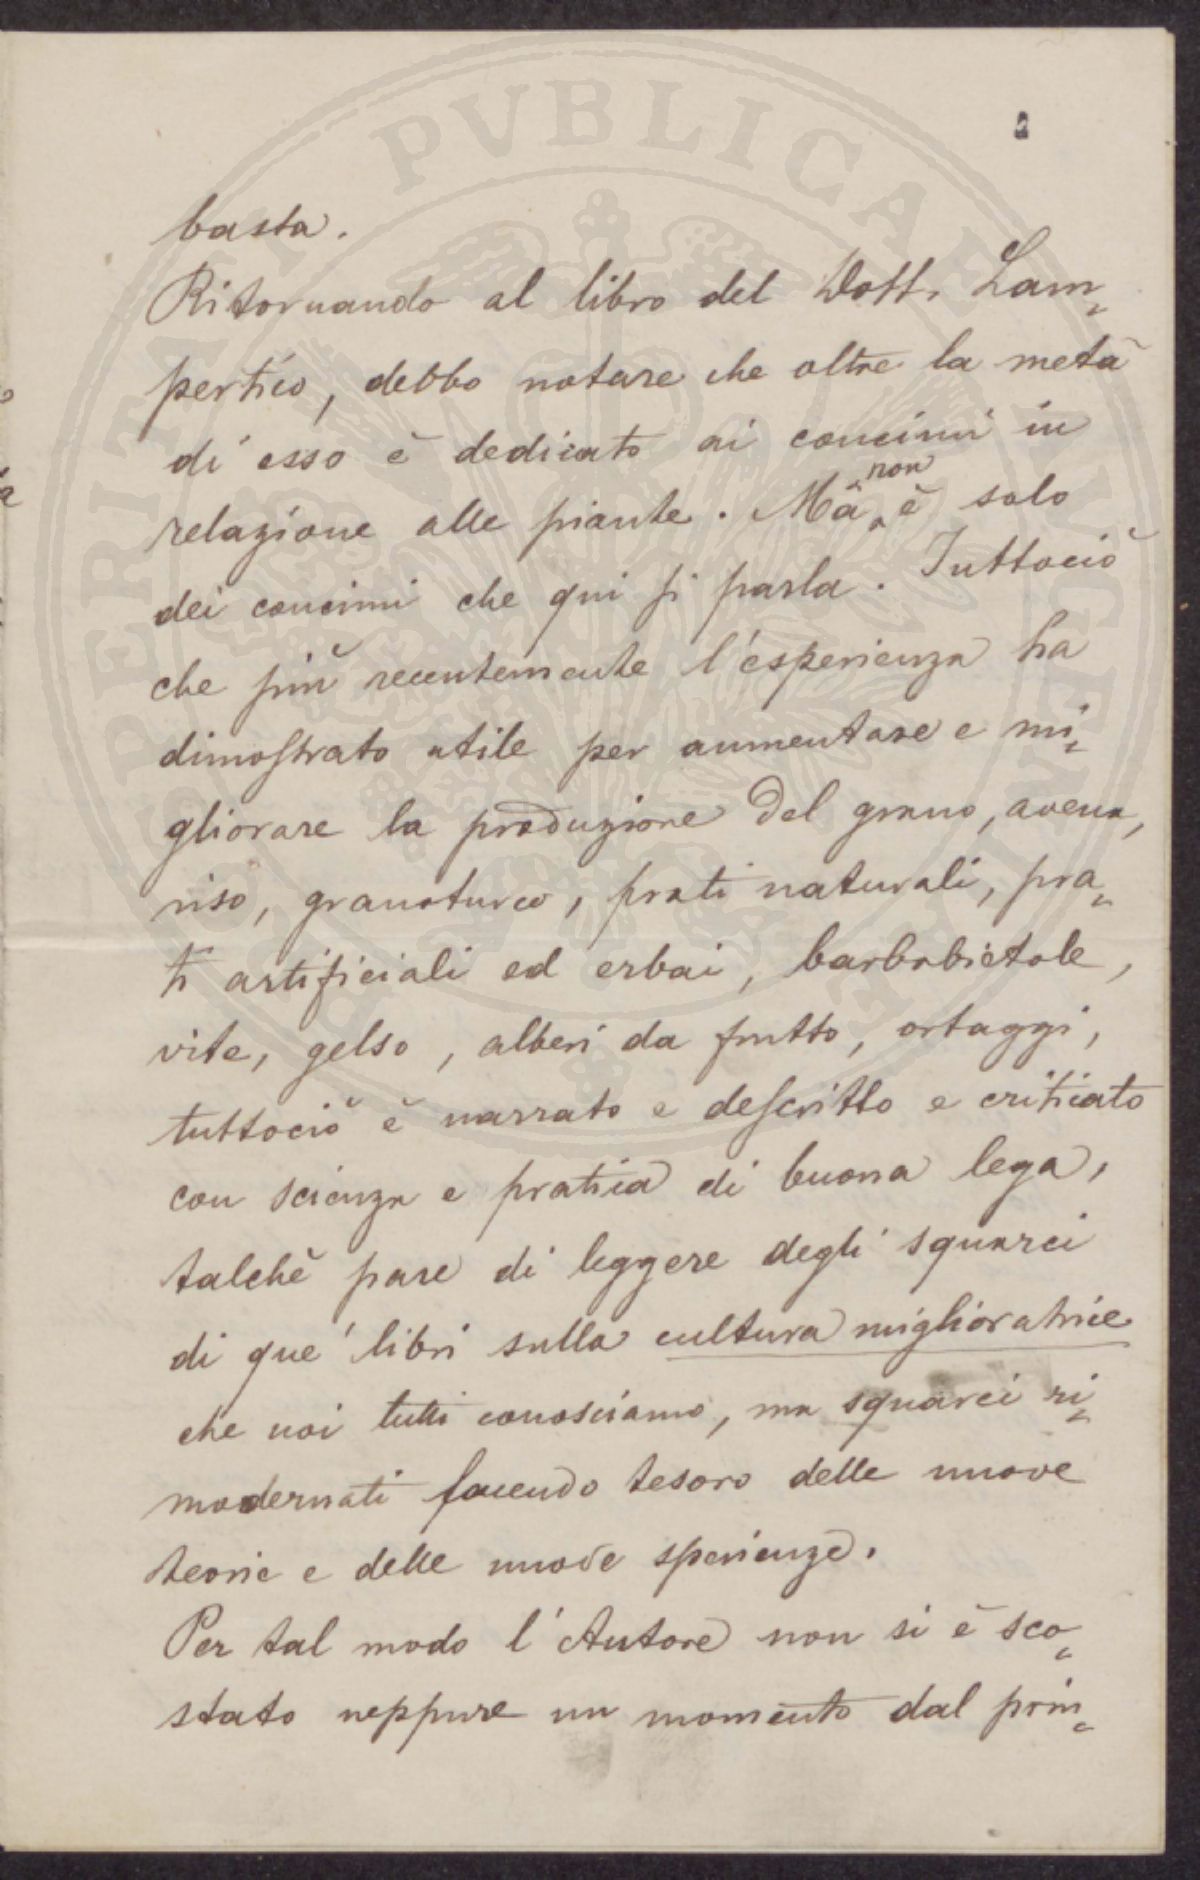 PERITATI PVBLICAE AVGENDAE
2
basta.
Ritornando al libro del Dott. Lam-
pertico, debbo notare che oltre la metà
di esso è dedicato ai concimi in
relazione alle piante. Mà non è solo
dei concimi che qui si parla. Tuttociò
che più recentemente l'esperienza ha
dimostrato utile per aumentare e mi-
gliorare la produzione del grano, avena,
riso, granoturco, prati naturali, pra-
ti artificiali ed erbai, barbabietole,
vite, gelso, alberi da frutto, ortaggi,
tuttociò è narrato e descritto e criticato
con scienza e pratica di buona lega,
talchè pare di leggere degli squarci
di que' libri sulla cultura miglioratrice
che noi tutti conosciamo, ma squarci ri-
modernati facendo tesoro delle nuove
teorie e delle nuove sperienze.
Per tal modo l'Autore non si è sco-
stato neppure un momento dal prin-